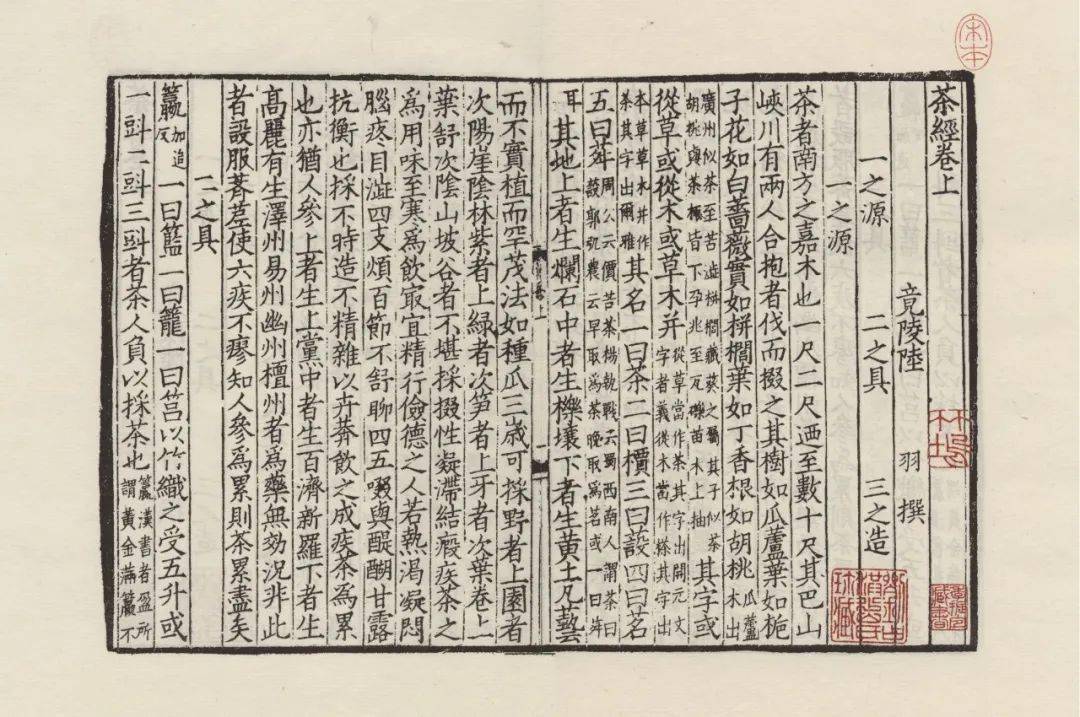 宋本
茶經卷上
竟陵陸 羽 撰
一之源 二之具 三之造
一之源
茶者南方之嘉木也一尺二尺迺至數十尺其巴山
峽川有兩人合抱者伐而掇之其樹如瓜蘆葉如梔
子花如白薔薇實如栟櫚葉如丁香根如胡桃瓜蘆木出
廣州似茶至苦澁栟櫚蒲葵之屬其子似茶胡桃與茶根皆下孕兆至瓦礫苗木上抽其字或
從草或從木或草木并從草當作茶其字出開元文字者義從木當作梌其字出
本草草木并作茶其字出爾雅其名一曰茶二曰檟三曰蔎四曰茗
五曰荈周公云檟苦茶楊執戟云蜀西南人謂茶曰蔎郭弘農云早取爲茶晚取爲茗或一曰荈
耳其地上者生爛石中者生櫟壤下者生黃土凡藝
而不實植而罕茂法如種瓜三歲可採野者上園者
次陽崖陰林紫者上綠者次笋者上牙者次葉卷上
葉舒次陰山坡谷者不堪採掇性凝滯結瘕疾茶之
爲用味至寒爲飲冣宜精行儉德之人若熱渴凝悶
腦疼目澁四支煩百節不舒聊四五啜與醍醐甘露
抗衡也採不時造不精雜以卉莽飲之成疾茶爲累
也亦猶人參上者生上黨中者生百濟新羅下者生
高麗有生澤州易州幽州檀州者爲藥無効況非此
者設服薺苨使六疾不瘳知人參爲累則茶累盡矣
二之具
籯加追反一曰籃一曰籠一曰筥以竹織之受五升或
一㪷二㪷三㪷者茶人負以採茶也籯漢書音盈所謂黃金滿籯不